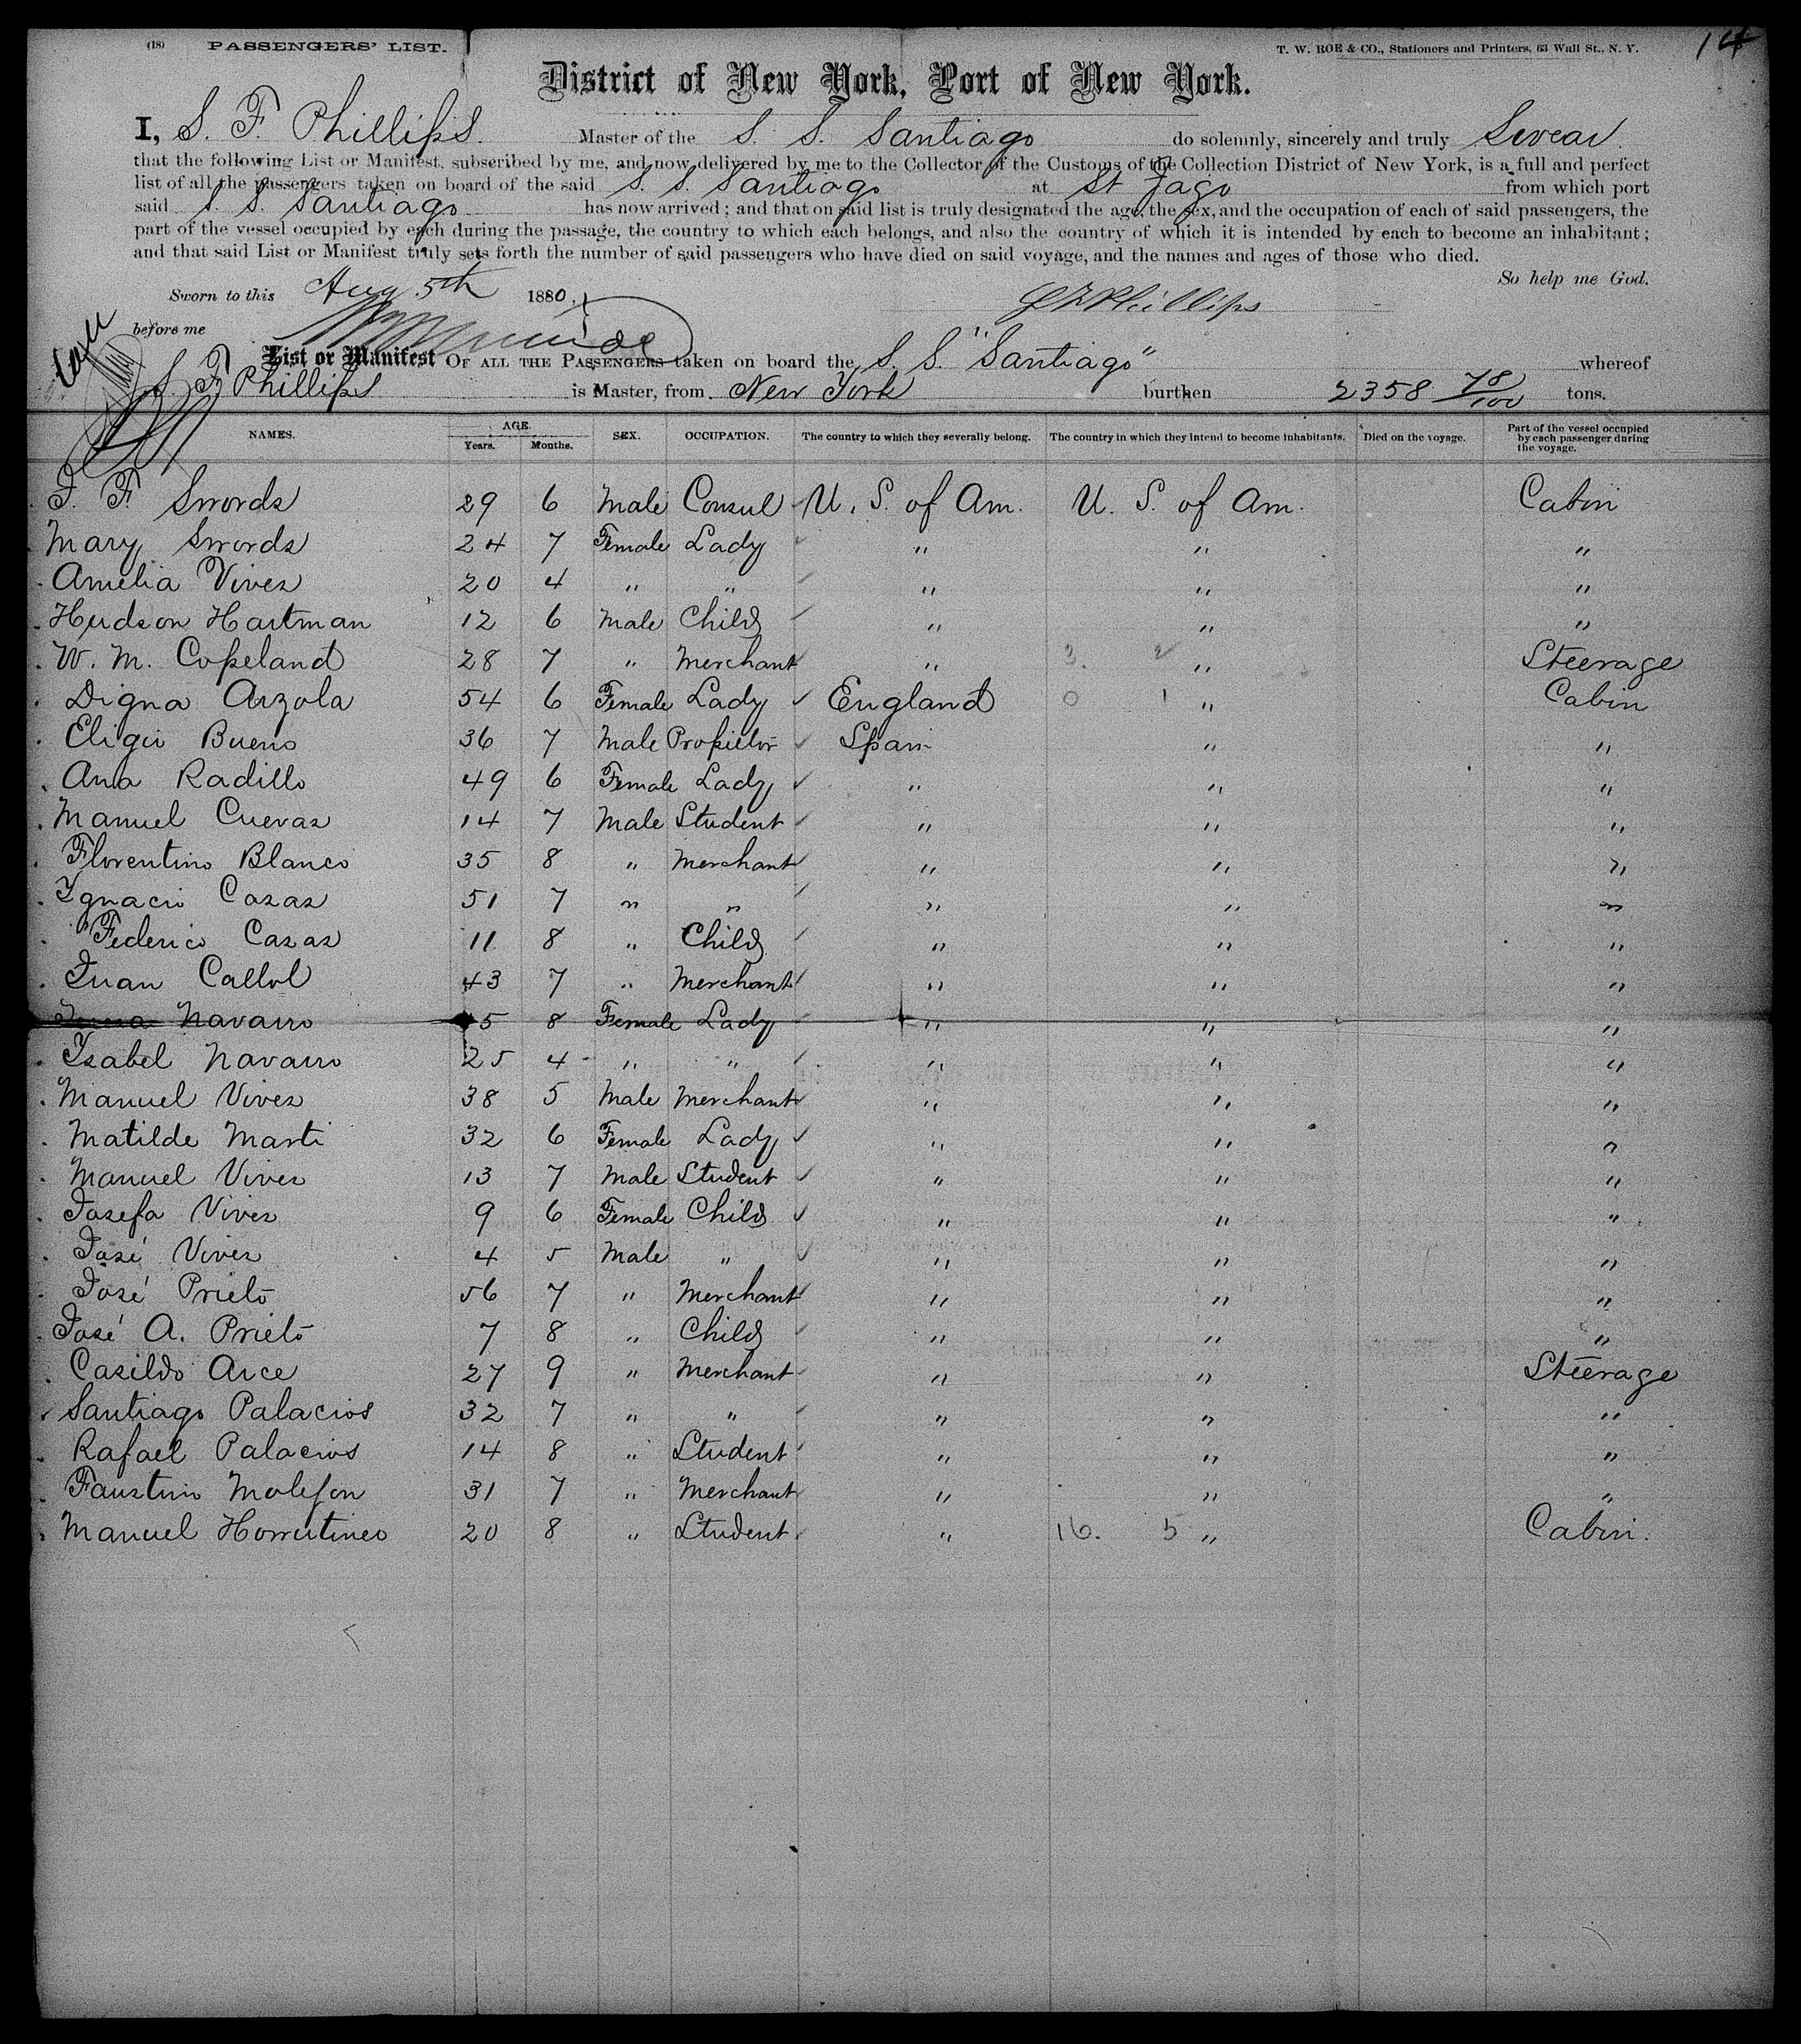 (18) PASSENGERS' LIST. T. W. ROE & CO., Stationers and Printers, 63 Wall St., N. Y. 14
District of New York, Port of New York.
I, S. F. Phillips Master of the S. S. Santiago do solemnly, sincerely and truly Swear
that the following List or Manifest, subscribed by me, and now delivered by me to the Collector of the Customs of the Collection District of New York, is a full and perfect
list of all the passengers taken on board of the said S. S. Santiago at St Jago from which port
said S. S. Santiago has now arrived; and that on said list is truly designated the age, the sex, and the occupation of each of said passengers, the
part of the vessel occupied by each during the passage, the country to which each belongs, and also the country of which it is intended by each to become an inhabitant;
and that said List or Manifest truly sets forth the number of said passengers who have died on said voyage, and the names and ages of those who died.
So help me God.
Sworn to this Aug 5th 1880, S F Phillips
before me
List or Manifest OF ALL THE PASSENGERS taken on board the S. S. "Santiago" whereof
S. F. Phillips is Master, from New York burthen 2358 78/100 tons.
NAMES. AGE. Years. Months. SEX. OCCUPATION. The country to which they severally belong. The country in which they intend to become inhabitants. Died on the voyage. Part of the vessel occupied by each passenger during the voyage.
J. F. Swords 29 6 Male Consul U. S. of Am. U. S. of Am. Cabin
Mary Swords 24 7 Female Lady " " "
Amelia Vives 20 4 " " " " "
Hudson Hartman 12 6 Male Child " " "
W. M. Copeland 28 7 " Merchant " 3. 2 " Steerage
Digna Arzola 54 6 Female Lady England 0 1 " Cabin
Eligio Bueno 36 7 Male Propietor Spain " "
Ana Radillo 49 6 Female Lady " " "
Manuel Cuevas 14 7 Male Student " " "
Florentino Blanco 35 8 " Merchant " " "
Ignacio Casas 51 7 " " " " "
Federico Casas 11 8 " Child " " "
Juan Callol 43 7 " Merchant " " "
Navarro 5 8 Female Lady " " "
Isabel Navarro 25 4 " " " " "
Manuel Vives 38 5 Male Merchant " " "
Matilde Marti 32 6 Female Lady " " "
Manuel Vives 13 7 Male Student " " "
Josefa Vives 9 6 Female Child " " "
José Vives 4 5 Male " " " "
José Prieto 56 7 " Merchant " " "
José A. Prieto 7 8 " Child " " "
Casildo Arce 27 9 " Merchant " " Steerage
Santiago Palacios 32 7 " " " " "
Rafael Palacios 14 8 " Student " " "
Faustino 31 7 " Merchant " " "
Manuel 20 8 " Student " 16. 5 " Cabin.